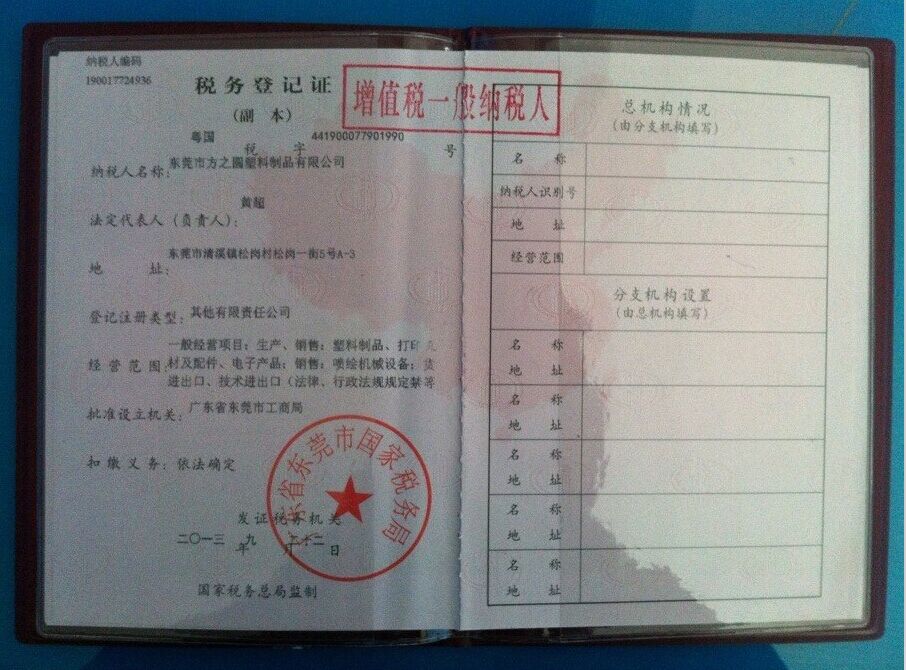 纳税人编码
190017724936
税务登记证
(副 本)
增值税一般纳税人
粤国 税 字 441900077901990 号
纳税人名称: 东莞市方之圆塑料制品有限公司
法定代表人(负责人): 黄超
地 址: 东莞市清溪镇松岗村松岗一街5号A-3
登记注册类型: 其他有限责任公司
经营范围: 一般经营项目：生产、销售：塑料制品、打印
材及配件、电子产品；销售：喷绘机械设备；货
进出口、技术进出口（法律、行政法规规定禁等
批准设立机关: 广东省东莞市工商局
扣缴义务: 依法确定
省东莞市国家税务局
发证税务机关
二〇一三 年 九 月 二十二 日
国家税务总局监制
总机构情况
(由分支机构填写)
名 称
纳税人识别号
地 址
经营范围
分支机构设置
(由总机构填写)
名 称
地 址
名 称
地 址
名 称
地 址
名 称
地 址
名 称
地 址